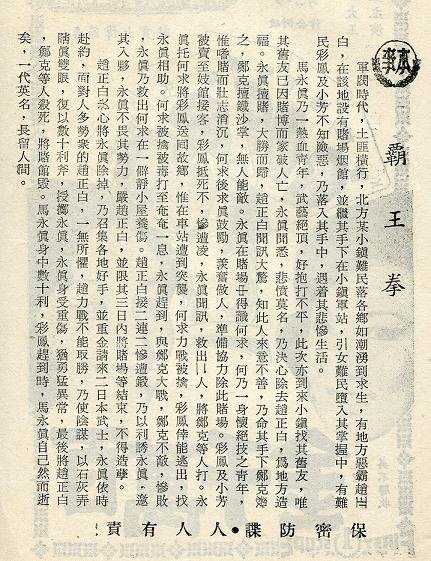 本事
霸王拳
軍閥時代，土匪橫行，北方某小鎮難民落各鄉如潮湧到求生，有地方惡霸趙正
白，在該地設有賭場烟館，並繼其手下在小鎮車站，引女難民墮入其掌握中，有難
民彩鳳及小芳不知險惡，乃落入其手中，遇着其悲慘生活。
馬永眞乃一熱血青年，武藝絕頂，好抱打不平，此次亦到來小鎮找其舊友，唯
其舊友已因賭博而家破人亡，永眞聞悉，悲憤莫名，乃決心除去趙正白，爲地方造
福。永眞擅賭，大勝而歸，趙正白聞訊大驚，知此人來意不善，乃命其手下鄭克懲
之，鄭克擅鐵沙掌，無人能敵。永眞在賭場中得識何求，何乃一身懷絕技之青年，
惟嗜賭而壯志消沉，何求後求眞鼓勵，羨奮做人，準備協力除此賭場。彩鳳及小芳
被賣至妓館接客，彩鳳抵死不，慘遭凌，永眞聞訊，救出二人，將鄭克等人打。永
眞托何求將彩鳳送回故鄉，惟在車站遭到突襲，何求力戰被擒，彩鳳倖能逃出，找
永眞相助。何求被擒被毒打至奄奄一息，永眞趕到，與鄭克大戰，鄭克不敵，慘敗
，永眞乃救出何求在一僻靜小屋養傷。趙正白接二連二慘遭鍛，乃以利誘永眞，邀
其入夥，永眞不畏其勢力，嚴趙正白，並限其三日內將賭場等結束，不得造孽。
趙正白忿心將永眞除掉，乃召集各地好手，並重金請來二日本武士，永眞依時
赴約，面對人多勢衆的趙正白，一無所懼，趙力戰不能取勝，乃使陰謀，以石灰弄
瞎眞雙眼，復以數十利斧，授擲永眞，永眞身受重傷，猶勇猛異常，最後將趙正白
，鄭克等人殺死，將賭館毀。馬永眞身中數十利，彩鳳趕到時，馬永眞自己然而逝
矣，一代英名，長留人間。
保密防諜•人人有責